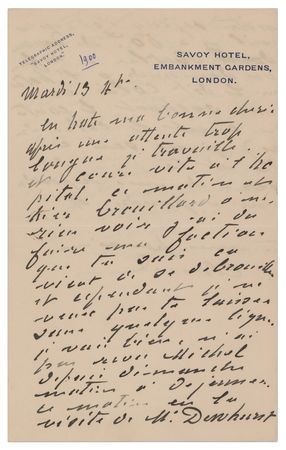 TELEGRAPHIC ADDRESS,
"SAVOY HOTEL,
LONDON."
1900
SAVOY HOTEL,
EMBANKMENT GARDENS,
LONDON.
Mardi 13
En hâte ma bonne chérie
après une attente trop
longue j'ai travaillé
et cours vite à l'hô
pital. ce matin et
hier brouillard à ne
rien voir j'ai du
faire ma faction
que tu sais en
de se débrouiller
et cependant je ne
veux pas te laisser
sans quelque ligne.
je vais bien, n'ai
pas revu Michel
depuis dimanche
matin à dejeuner.
ce matin eu la
visite de Mr Dewhurst